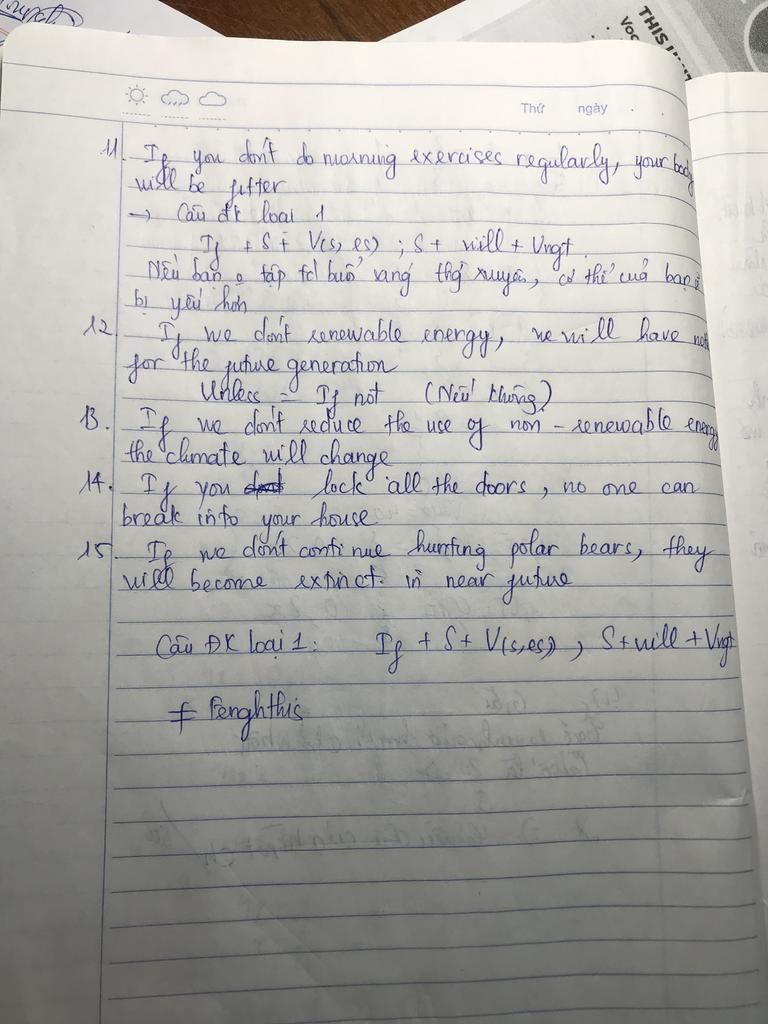 THIS
Voc
Thứ ngày
11. If you don't do morning exercises regularly, your body
will be fitter
→ Câu đk loại 1
If + S + V(s, es) ; S + will + Vngt
Nếu bạn o tập td buổi sáng thg xuyên, cơ thể của bạn
bị yếu hơn
12. If we don't renewable energy, we will have
for the future generation
Unless = If not (Nếu không)
13. If we don't reduce the use of non - renewable energy
the climate will change
14. If you lock all the doors, no one can
break into your house
15. If we don't continue hunting polar bears, they
will become extinct. in near future
Câu ĐK loại 1: If + S + V(s,es) , S + will + Vngt